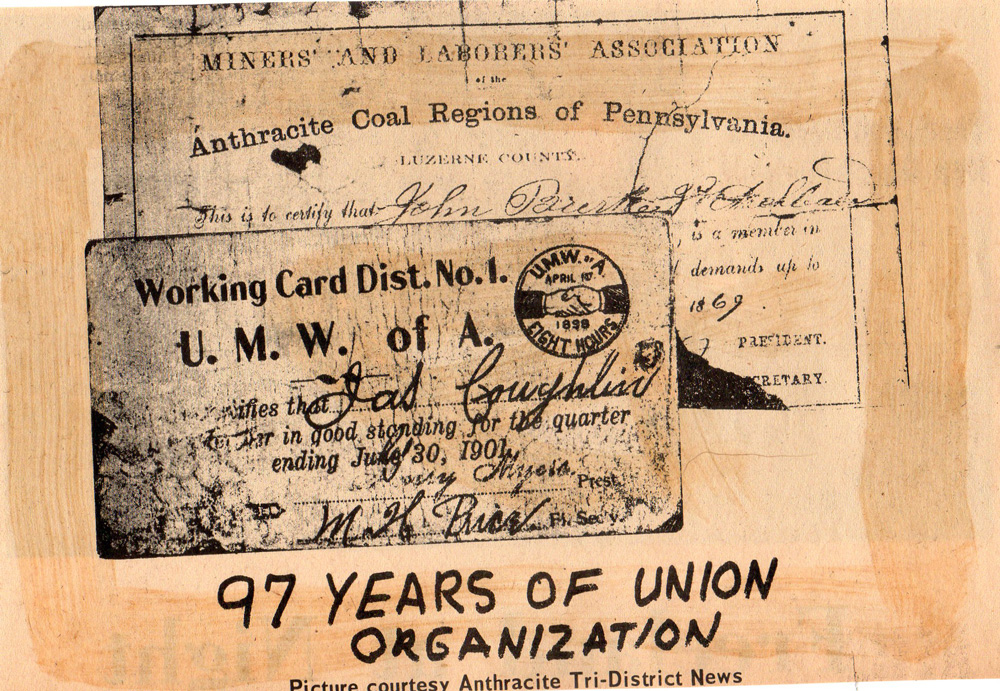 MINERS' AND LABORERS' ASSOCIATION
of the
Anthracite Coal Regions of Pennsylvania.
LUZERNE COUNTY.
This is to certify that John
is a member in
demands up to
1869.
PRESIDENT.
CRETARY.
Working Card Dist. No. 1.
U. M. W. of A.
U.M.W. OF A.
APRIL 1ST
1898
EIGHT HOURS
ifies that Jas Coughlin
in good standing for the quarter
ending 30, 1901.
Prest.
M H Price Fi. Sec'y.
97 YEARS OF UNION
ORGANIZATION
Picture courtesy Anthracite Tri-District News